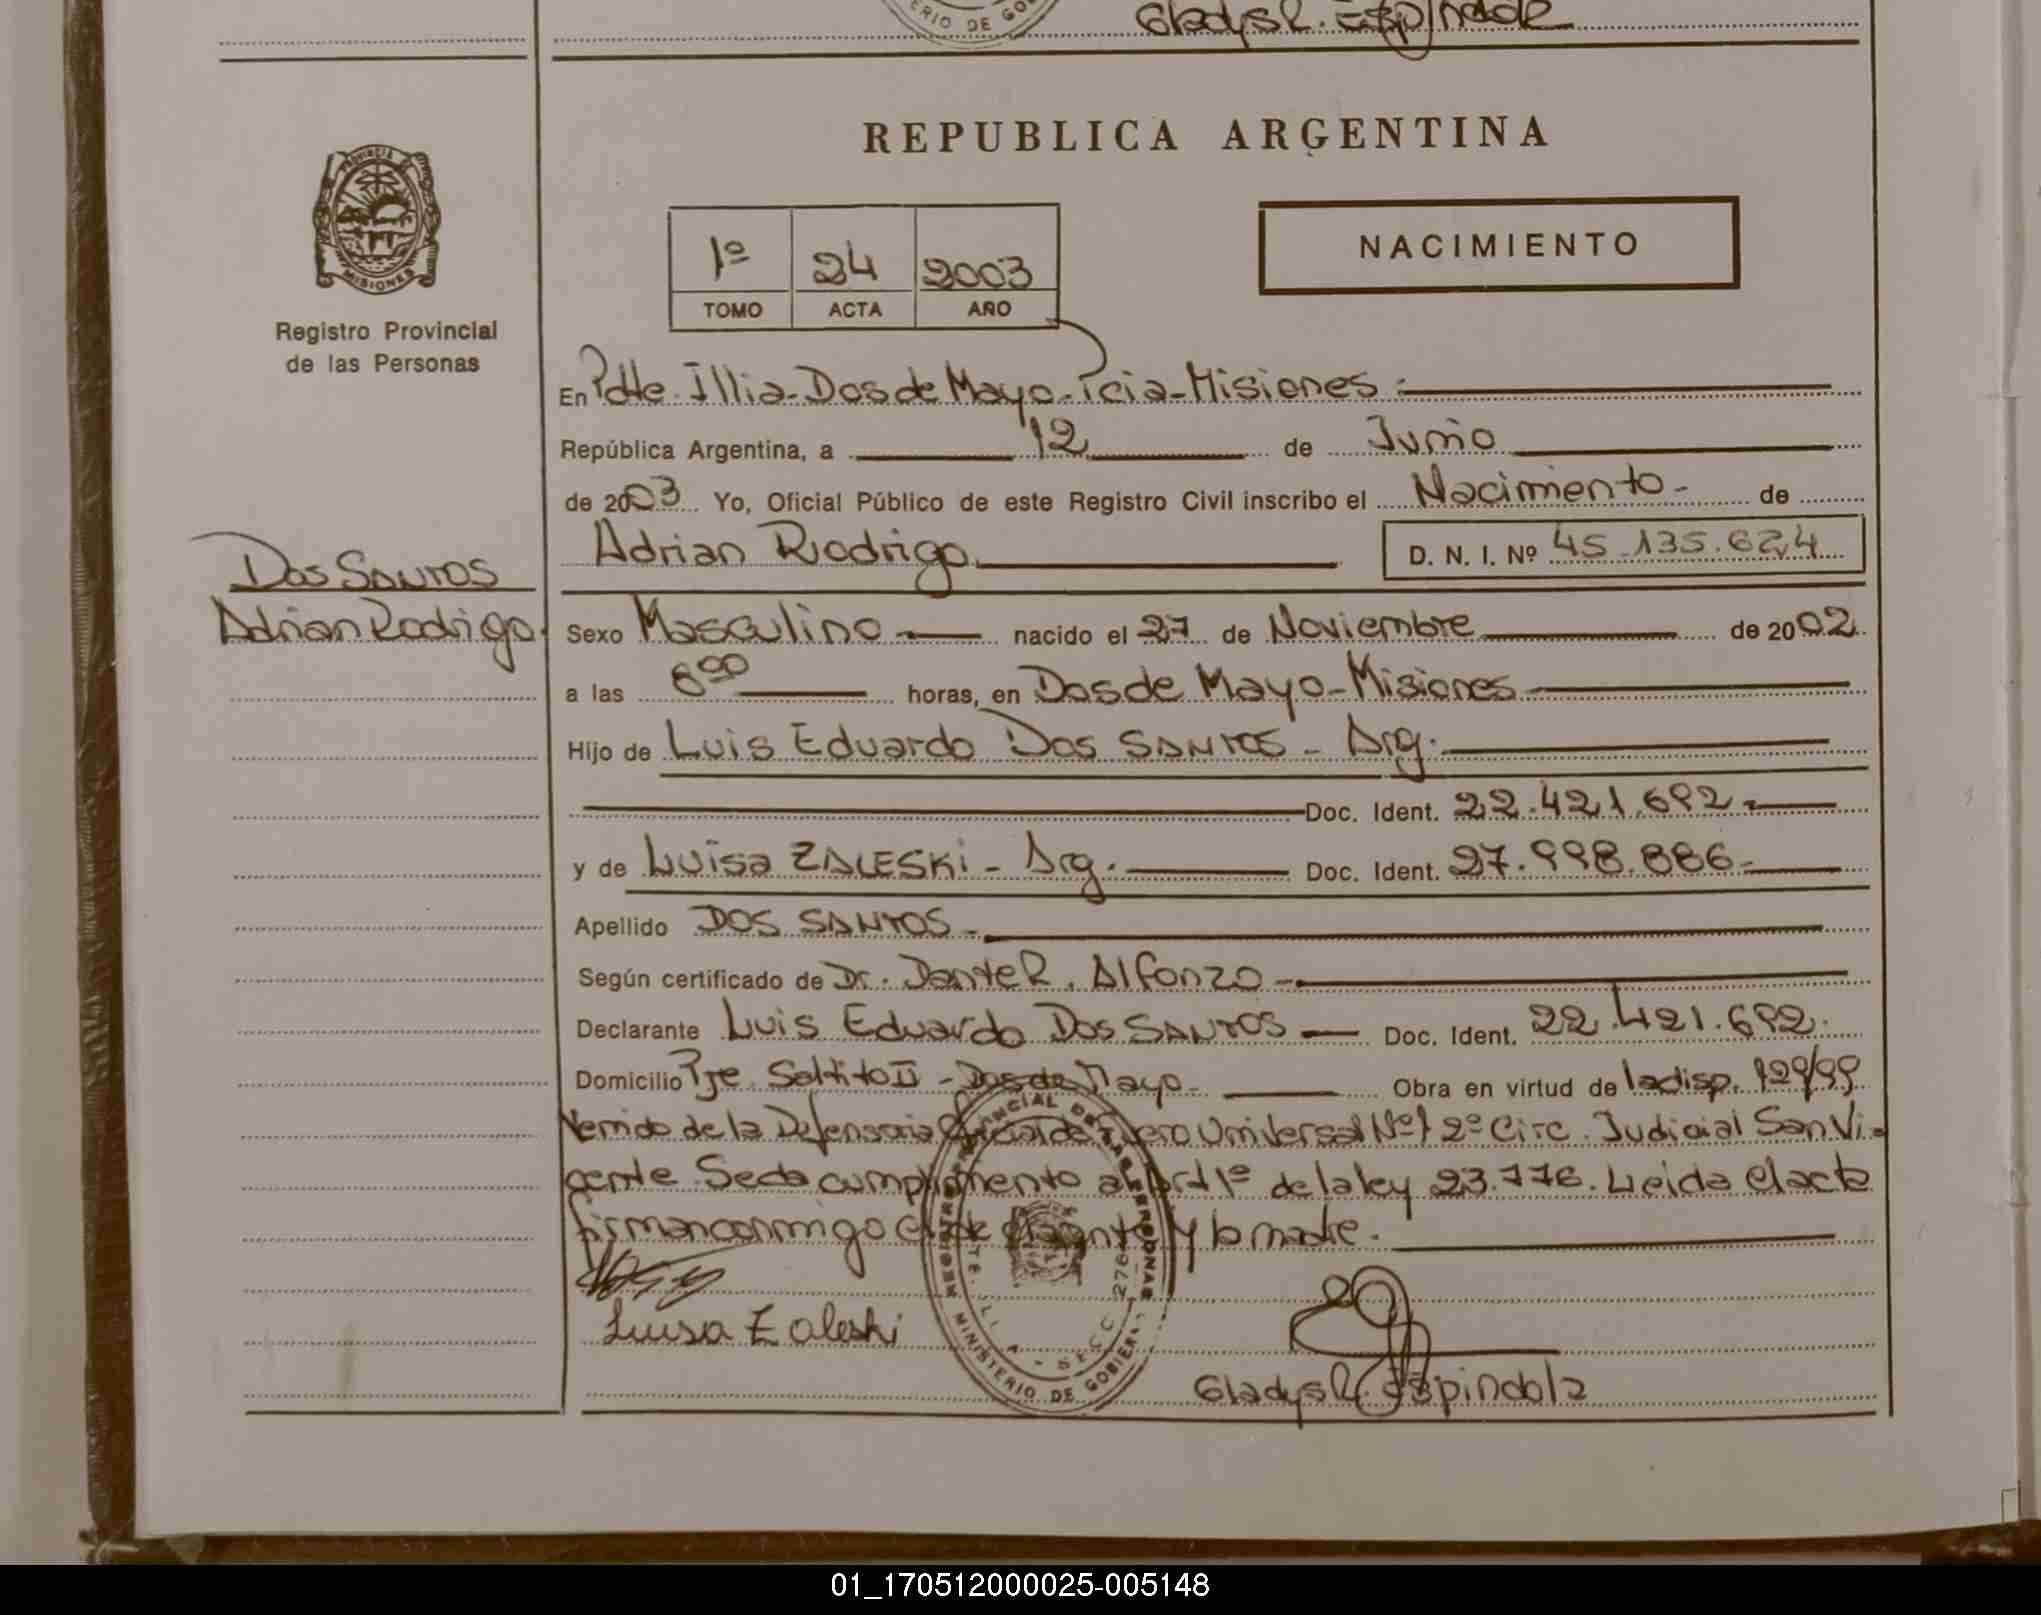 Gladys R. Espindola
REPUBLICA ARGENTINA
PROVINCIA DE
MISIONES
Registro Provincial
de las Personas
1º 24 2003
TOMO ACTA AÑO
NACIMIENTO
En Pdte. Illia-Dos de Mayo-Pcia-Misiones.
República Argentina, a 12 de Junio
de 2003 Yo, Oficial Público de este Registro Civil inscribo el Nacimiento- de
Adrian Rodrigo D. N. I. Nº 45.135.624
Dos SANTOS
Adrian Rodrigo.
Sexo Masculino nacido el 27 de Noviembre de 2002
a las 8⁰⁰ horas, en Dos de Mayo-Misiones
Hijo de Luis Eduardo Dos SANTOS - Arg.
Doc. Ident. 22.421.692-
y de Luisa ZALESKi - Arg. Doc. Ident. 27.998.886-
Apellido DOS SANTOS-
Según certificado de Dr. Dante R. Alfonzo-
Declarante Luis Eduardo Dos SANTOS Doc. Ident. 22.421.692.
Domicilio Pje Saltito II - Dos de Mayo- Obra en virtud de la disp. 129/99
Venido de la Defensoria Oficial de Fuero Universal Nº1 2º Circ. Judicial San Vi-
cente. Se da cumplimento al Art 1º de la ley 23.776. Leida el acta
firman conmigo el declarante y la madre.
Luisa Zaleski
Gladys R. Espindola
01_170512000025-005148